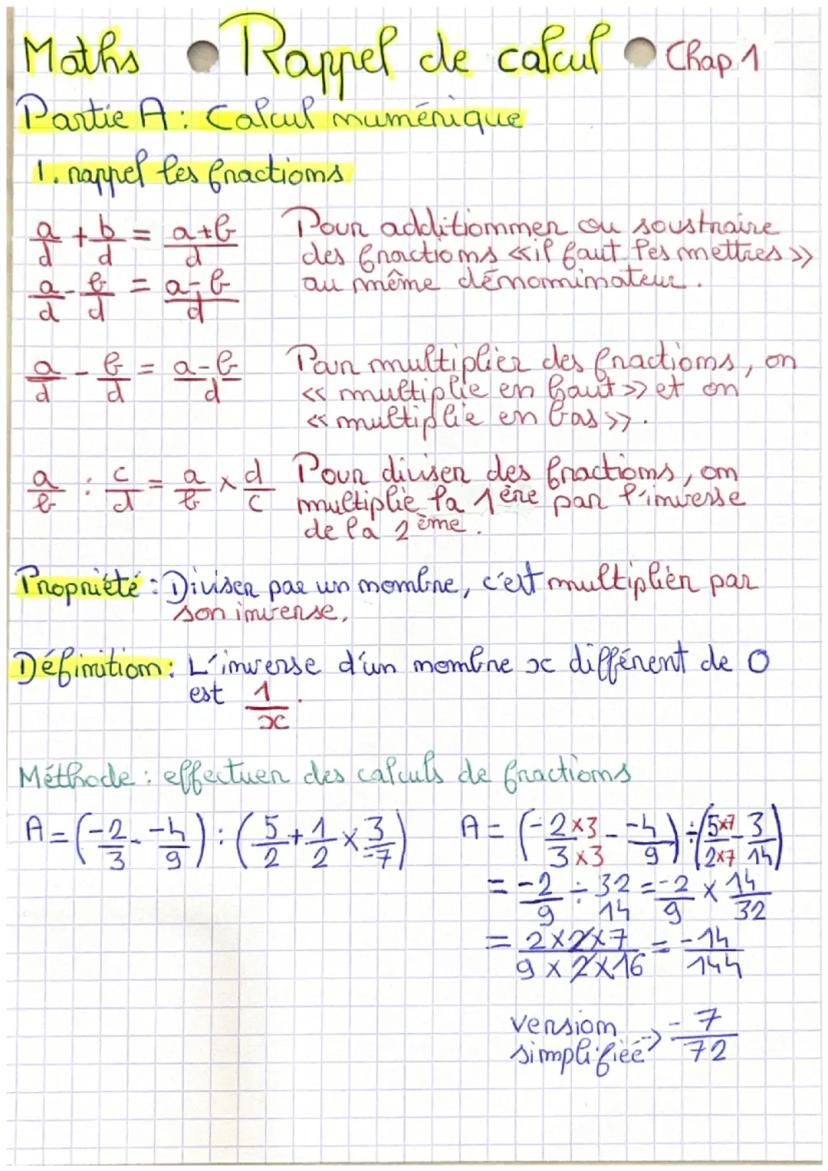 Maths Rappel de calcul Chap 1
Partie A : Calcul numérique
1. rappel les fractions
a/d + b/d = a+b/d Pour additionner ou soustraire
des fractions «il faut les mettres»
a/d - b/d = a-b/d au même dénominateur.
a/d - b/d = a-b/d Par multiplier des fractions, on
« multiplie en haut » et on
« multiplie en bas ».
a/b : c/d = a/b × d/c Pour diviser des fractions, on
multiplie la 1ère par l'inverse
de la 2ème.
Propriété : Diviser par un nombre, c'est multiplier par
son inverse.
Définition : L'inverse d'un nombre x différent de 0
est 1/x.
Méthode : effectuer des calculs de fractions
A = (-2/3 - -4/9) : (5/2 + 1/2 × 3/-7)
A = (-2×3/3×3 - -4/9) ÷ (5×7/2×7 - 3/14)
= -2/9 ÷ 32/14 = -2/9 × 14/32
= 2×2×7/9×2×16 = -14/144
version
simplifiée -> -7/72